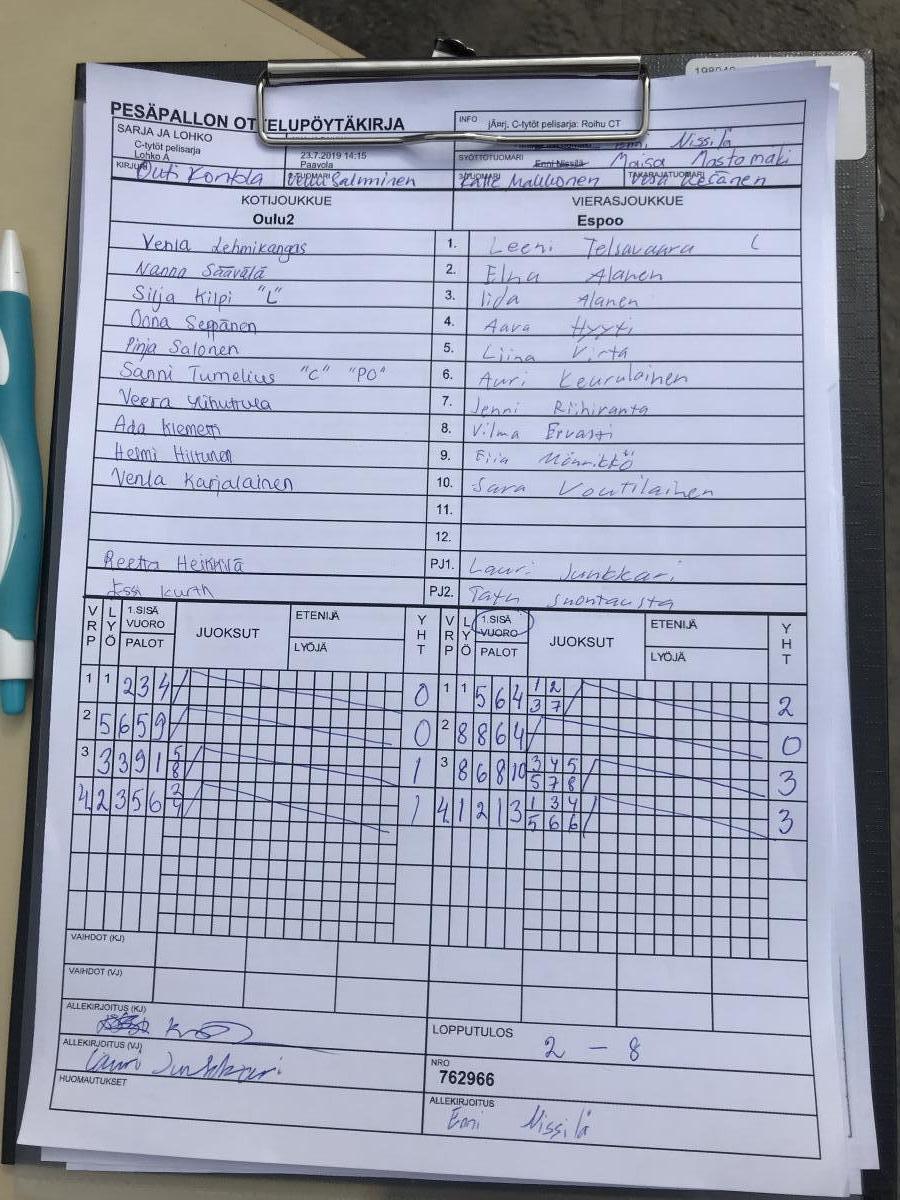 198040
PESÄPALLON OTTELUPÖYTÄKIRJA
INFO jÄ¤rj. C-tytöt pelisarja: Roihu CT
SARJA JA LOHKO
C-tytöt pelisarja
Lohko A
23.7.2019 14:15
Paavola
Nissilä
SYÖTTÖTUOMARI Enni Nissilä Maisa Mastomäki
KIRJURI Outi Kontola Salminen Malkkonen TAKARAJATUOMARI
KOTIJOUKKUE VIERASJOUKKUE
Oulu2 Espoo
Venla Lehmikangas 1. Leeni Telsavaara C
Nanna Säävälä 2. Elna Alanen
Silja Kilpi "L" 3. Iida Alanen
Oona Seppänen 4. Aava Hyyti
Pinja Salonen 5. Liina Virta
Sanni Tumelius "C" "PO" 6. Auri Keurulainen
Veera Ylihuttula 7. Jenni Riihiranta
Ada Klemetti 8. Vilma Ervasti
Helmi Hiltunen 9. Eiia Männikkö
Venla Karjalainen 10. Sara Voutilainen
11.
12.
Reetta Heikkilä PJ1. Lauri Junkkari
Essi Kurth PJ2. Tatu Suontausta
VRP LYÖ 1.SISÄ VUORO PALOT JUOKSUT ETENIJÄ LYÖJÄ YHT VRP LYÖ 1.SISÄ VUORO PALOT JUOKSUT ETENIJÄ LYÖJÄ YHT
1 1 2 3 4 0 1 1 5 6 4 1 2 3 7 2
2 5 6 5 9 0 2 8 8 6 4 0
3 3 3 9 1 5 8 1 3 8 6 8 10 3 4 5 5 7 8 3
4 2 3 5 6 1 4 1 2 1 3 1 3 4 5 6 6 3
VAIHDOT (KJ)
VAIHDOT (VJ)
ALLEKIRJOITUS (KJ)
LOPPUTULOS 2 - 8
ALLEKIRJOITUS (VJ) Lauri Junkkari
NRO
762966
HUOMAUTUKSET
ALLEKIRJOITUS
Enni Nissilä